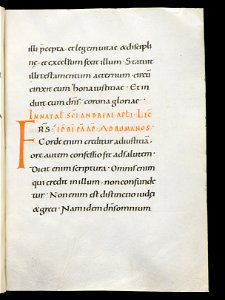 illi pcepta. et legem uitae & discipli
ne. et excelsum fecit illum. Statuit
illi testamentum aeternum. et circū
cinxit eum zona iustitiae. Et in
duit eum dn̄s corona gloriae.
IN NATAL SC̄I ANDREAE APLI. LEC̄
F̄RS EPĪ PAVL AD ROMANOS
Corde enim creditur ad iustitiā.
ore autem confessio fit ad salutem.
Dicit enim scriptura. Omnis enim
qui credit in illum. non confunde
tur. Non enim est distinctio iudęi
& greci. Nam idem dn̄s omnium